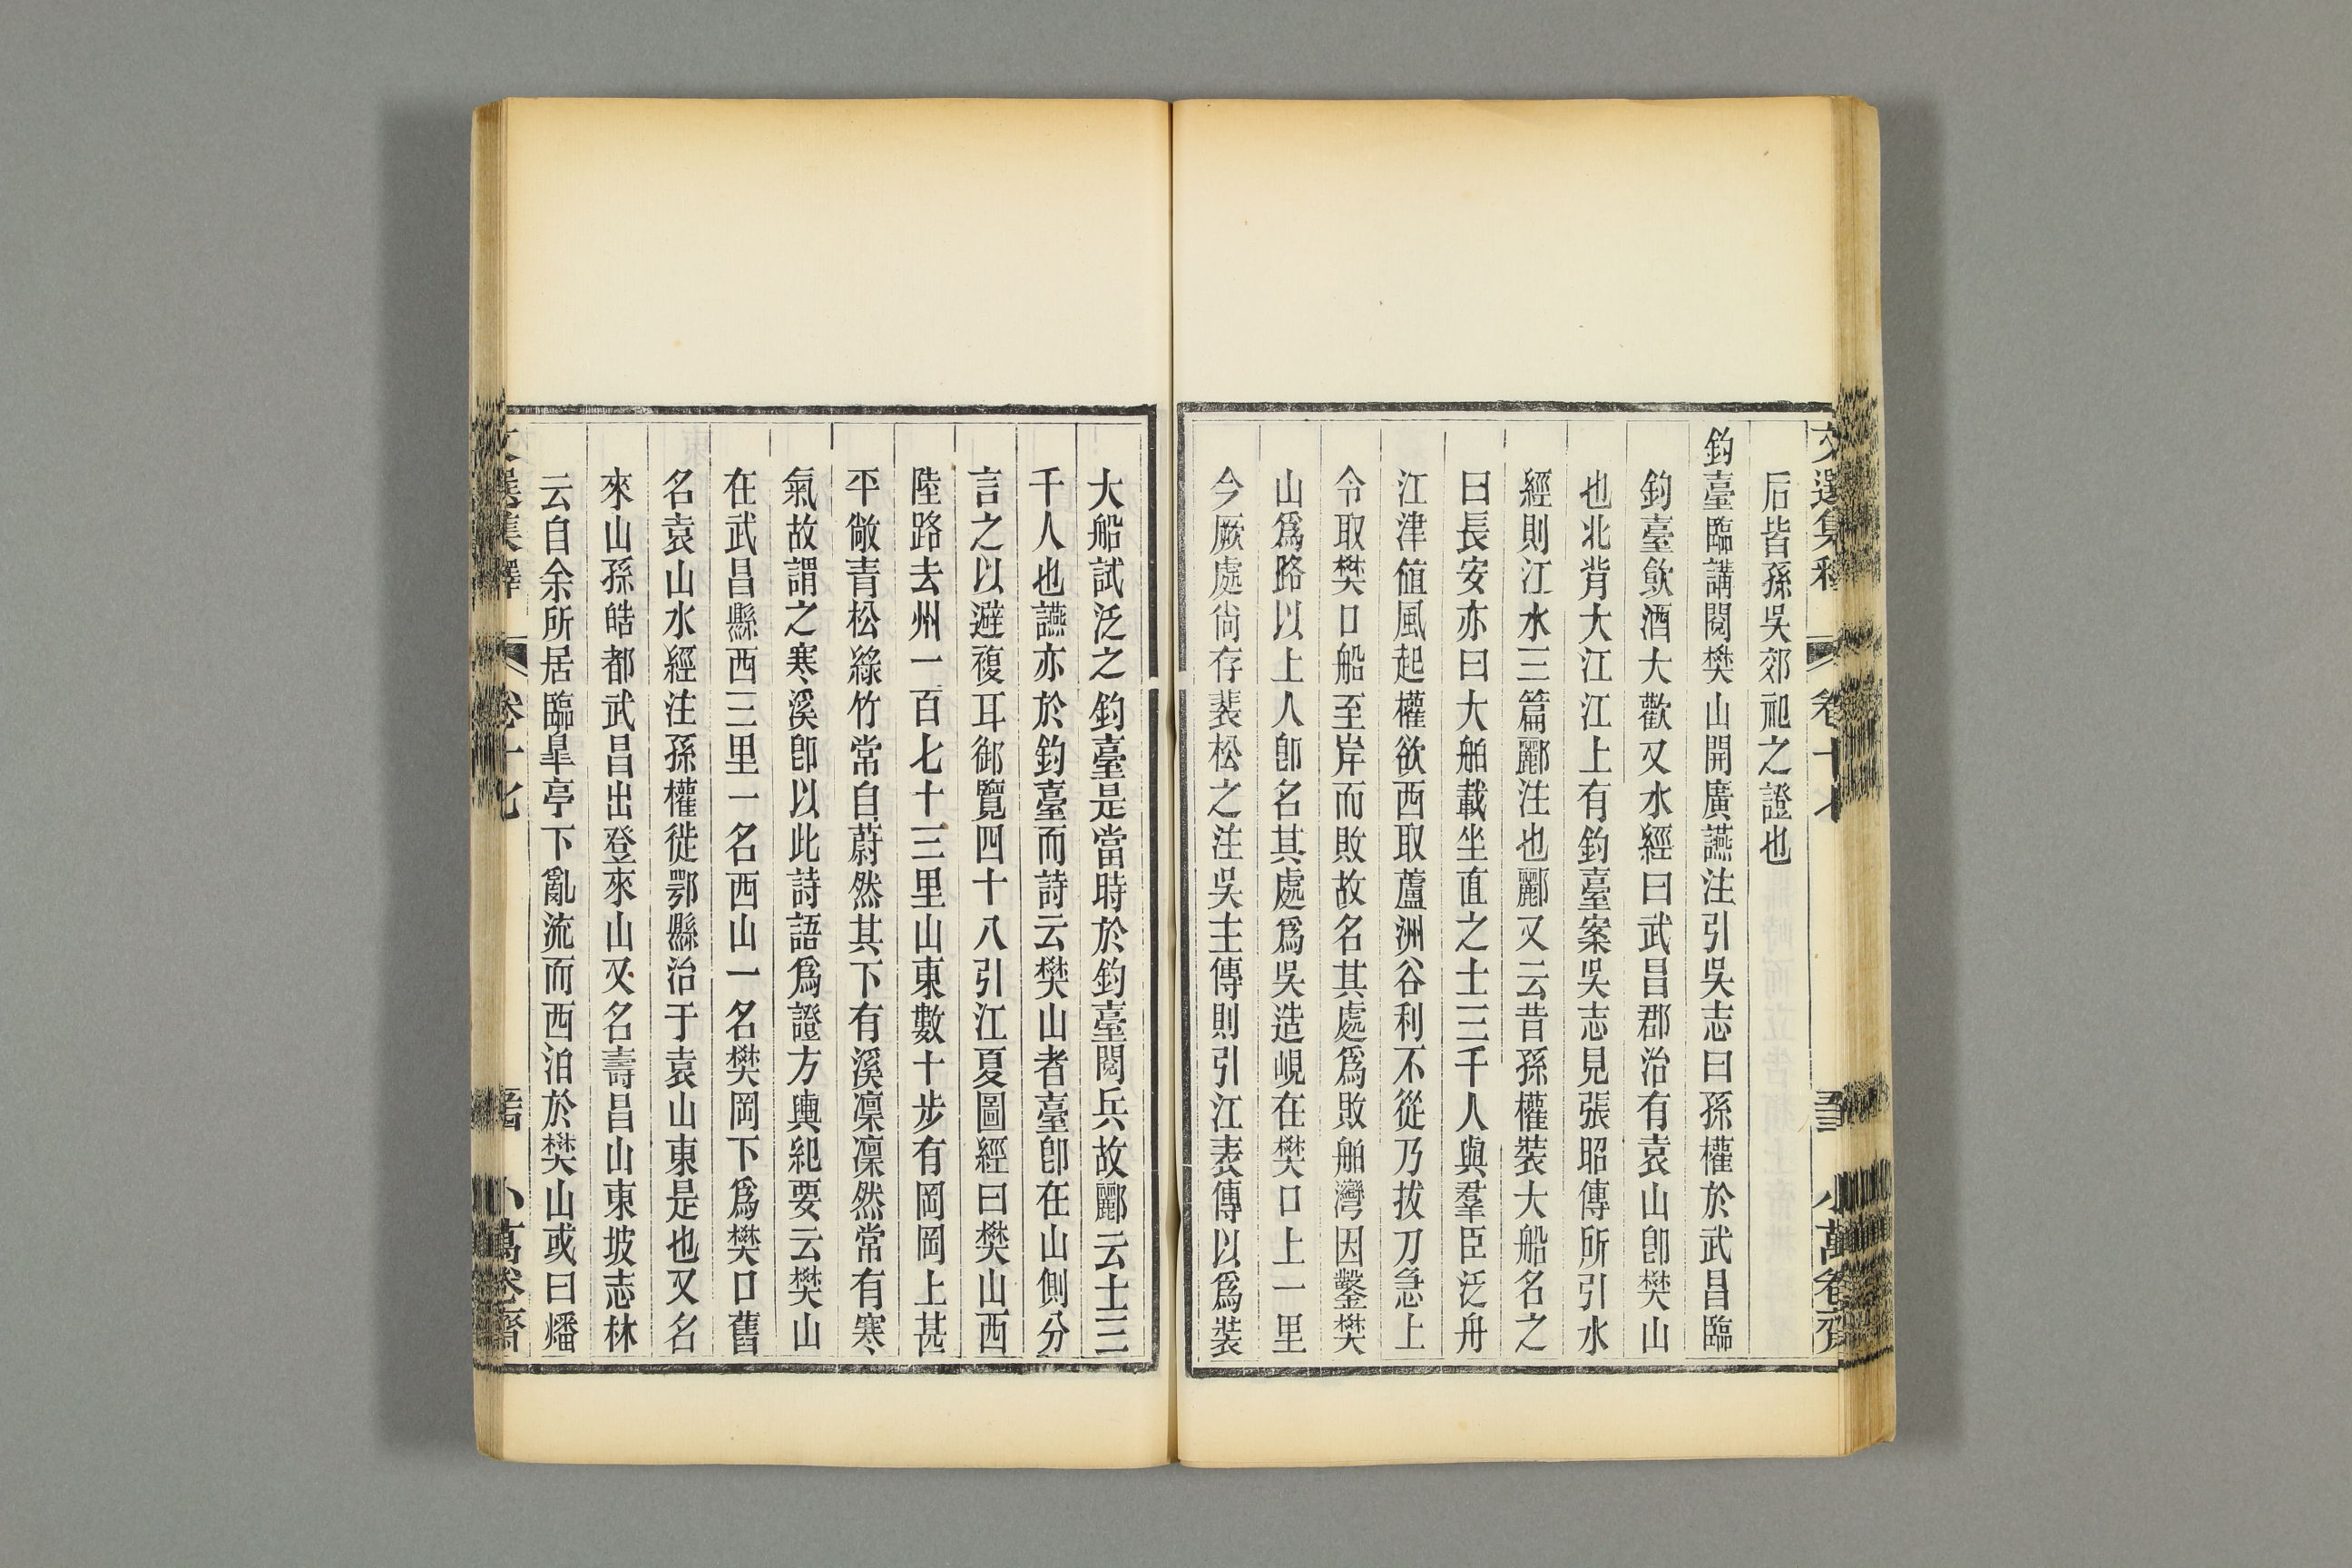 文選集釋 卷十七 三 小萬卷齋
后皆孫吳郊祀之證也
釣臺臨講閱樊山開廣讌注引吳志曰孫權於武昌臨
釣臺飲酒大歡又水經曰武昌郡治有袁山卽樊山
也北背大江江上有釣臺案吳志見張昭傳所引水
經則江水三篇酈注也酈又云昔孫權裝大船名之
曰長安亦曰大舶載坐直之士三千人與羣臣泛舟
江津值風起權欲西取蘆洲谷利不從乃拔刀急上
令取樊口船至岸而敗故名其處爲敗舶灣因鑿樊
山爲路以上人卽名其處爲吳造峴在樊口上一里
今厥處尙存裴松之注吳主傳則引江表傳以爲裝
大船試泛之釣臺是當時於釣臺閱兵故酈云士三
千人也讌亦於釣臺而詩云樊山者臺卽在山側分
言之以避複耳御覽四十八引江夏圖經曰樊山西
陸路去州一百七十三里山東數十步有岡岡上甚
平敞青松綠竹常自蔚然其下有溪凜凜然常有寒
氣故謂之寒溪卽以此詩語爲證方輿紀要云樊山
在武昌縣西三里一名西山一名樊岡下爲樊口舊
名袁山水經注孫權徙鄂縣治于袁山東是也又名
來山孫皓都武昌出登來山又名壽昌山東坡志林
云自余所居臨皋亭下亂流而西泊於樊山或曰燔
文選集釋 卷十七 小萬卷齋